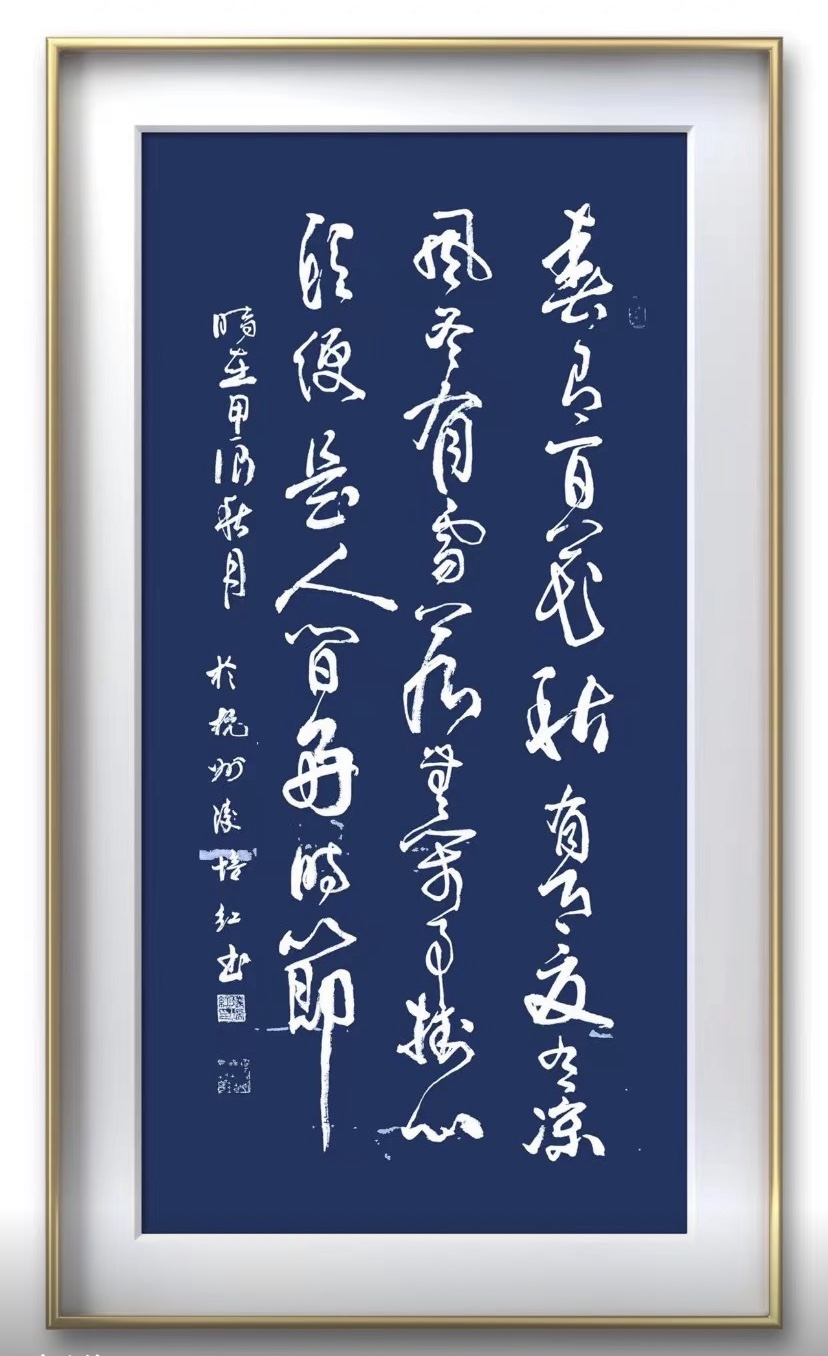 春有百花秋有月夏有凉
風冬有雪若無閑事掛心
頭便是人間好時節
時在甲辰秋月 於杭州凌培红书